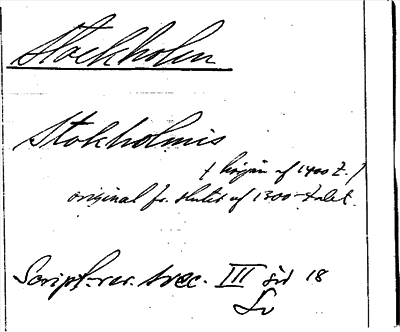 Stockholm
Stokholmis
( början af 1400 t. )
original fr. slutet af 1300-talet.
Script. rer. svec. III sid 18